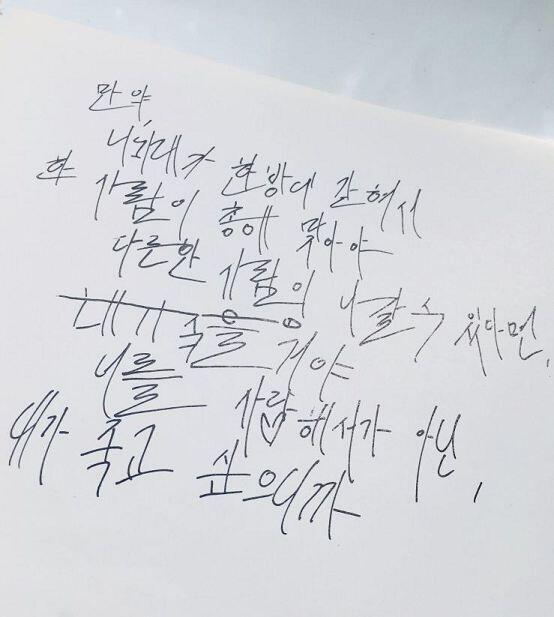 만약,
너와내가 한방에 갇혀서
한 사람이 총에 맞아야
다른한 사람이 나갈수 있다면,
내가 죽을 거야
너를 사랑해서가 아닌,
내가 죽고 싶으니까